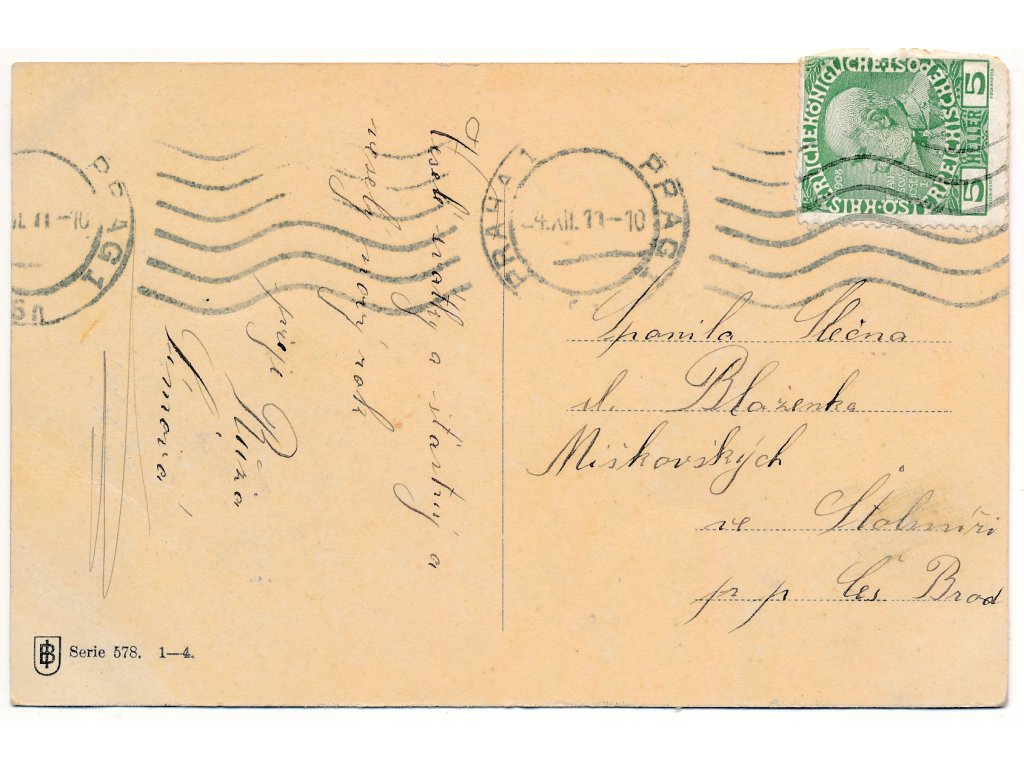 Veselé svátky a šťastný a
veselý nový rok
přeje Růža
Šímová
PRAHA 1
4.XII.11-10
PRAG 1
II.11-10
PRAG 1
KAIS. KÖNIGLICHE ÖSTERREICHISCHE POST
1908
5 HELLER 5
Spanilá Slečna
sl. Blaženka
Miškovských
ve Štolmíři
p p Čes Brod
Serie 578. 1—4.